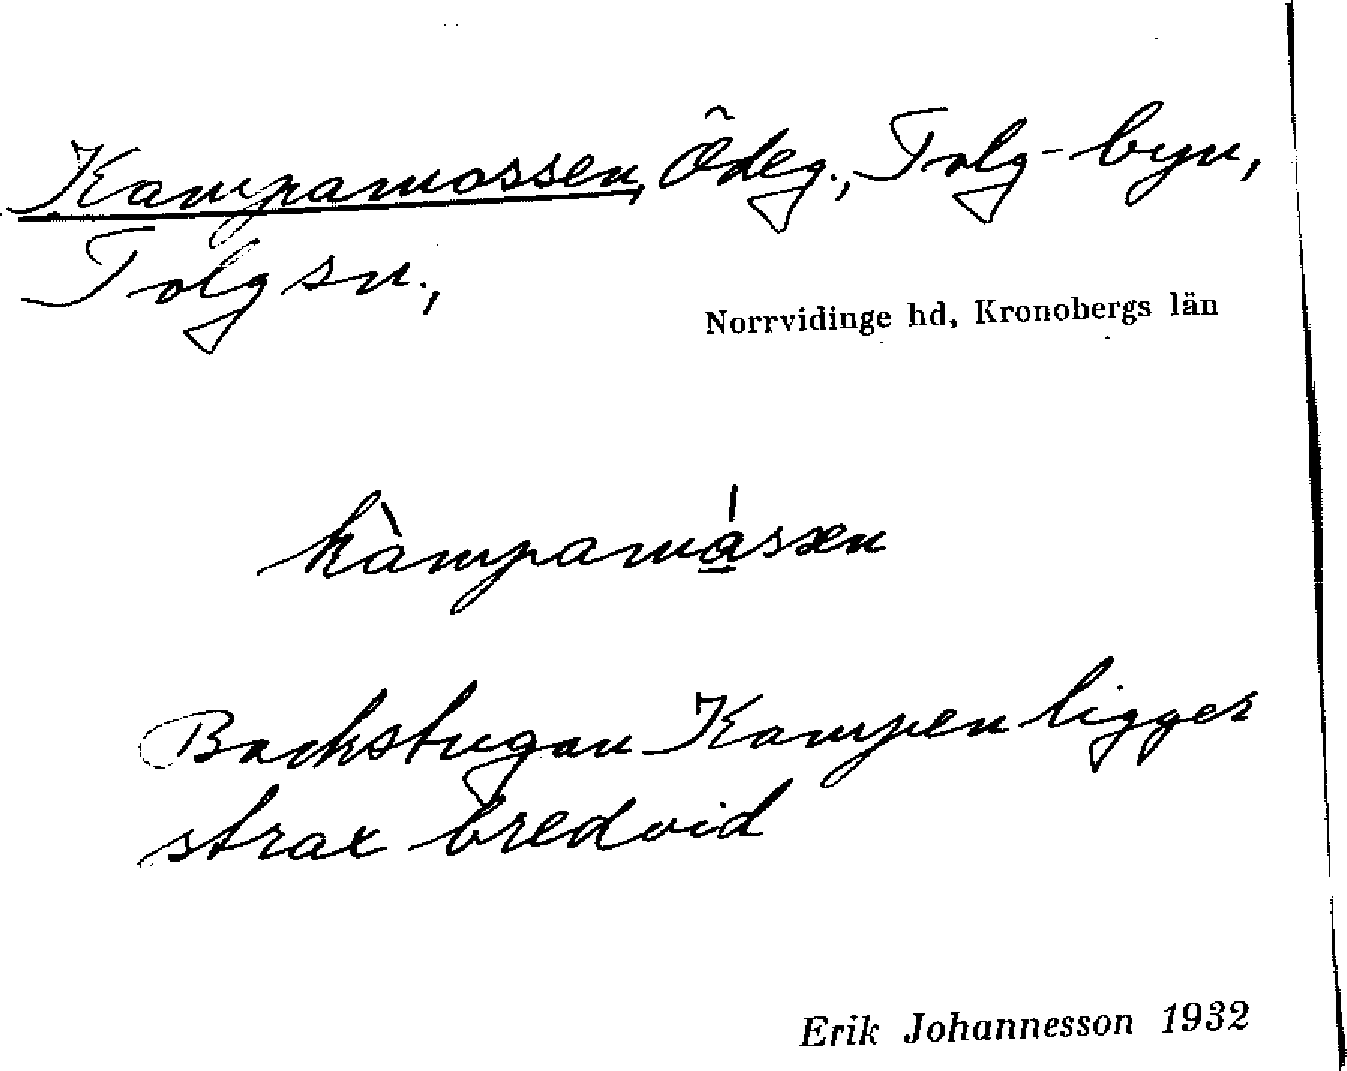 Kampamossen, Ödeg., Tolg-byn,
Tolg sn.,
Norrvidinge hd, Kronobergs län
kàmpamásen
Backstugan Kampen ligger
strax bredvid
Erik Johannesson 1932